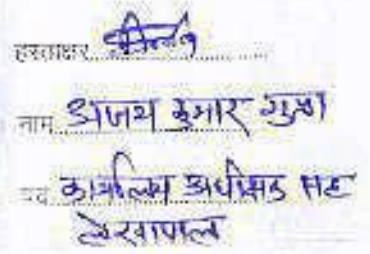 हस्ताक्षर
नाम अजय कुमार गुप्ता
पद कार्यालय अधीक्षक सह
लेखापाल